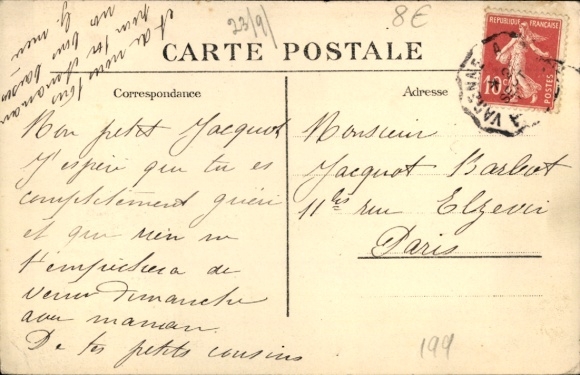 et de nous tous
pour toi
nos bons baisers
23/9/
8€
CARTE POSTALE
REPUBLIQUE FRANÇAISE
10
Correspondance
Adresse
Mon petit Jacquot
J'espère que tu es
complètement guéri
et que rien ne
t'empêchera de
venir dimanche
avec maman.
De tes petits cousins
Monsieur
Jacquot Barbot
11 bis rue Elzevir
Paris
194